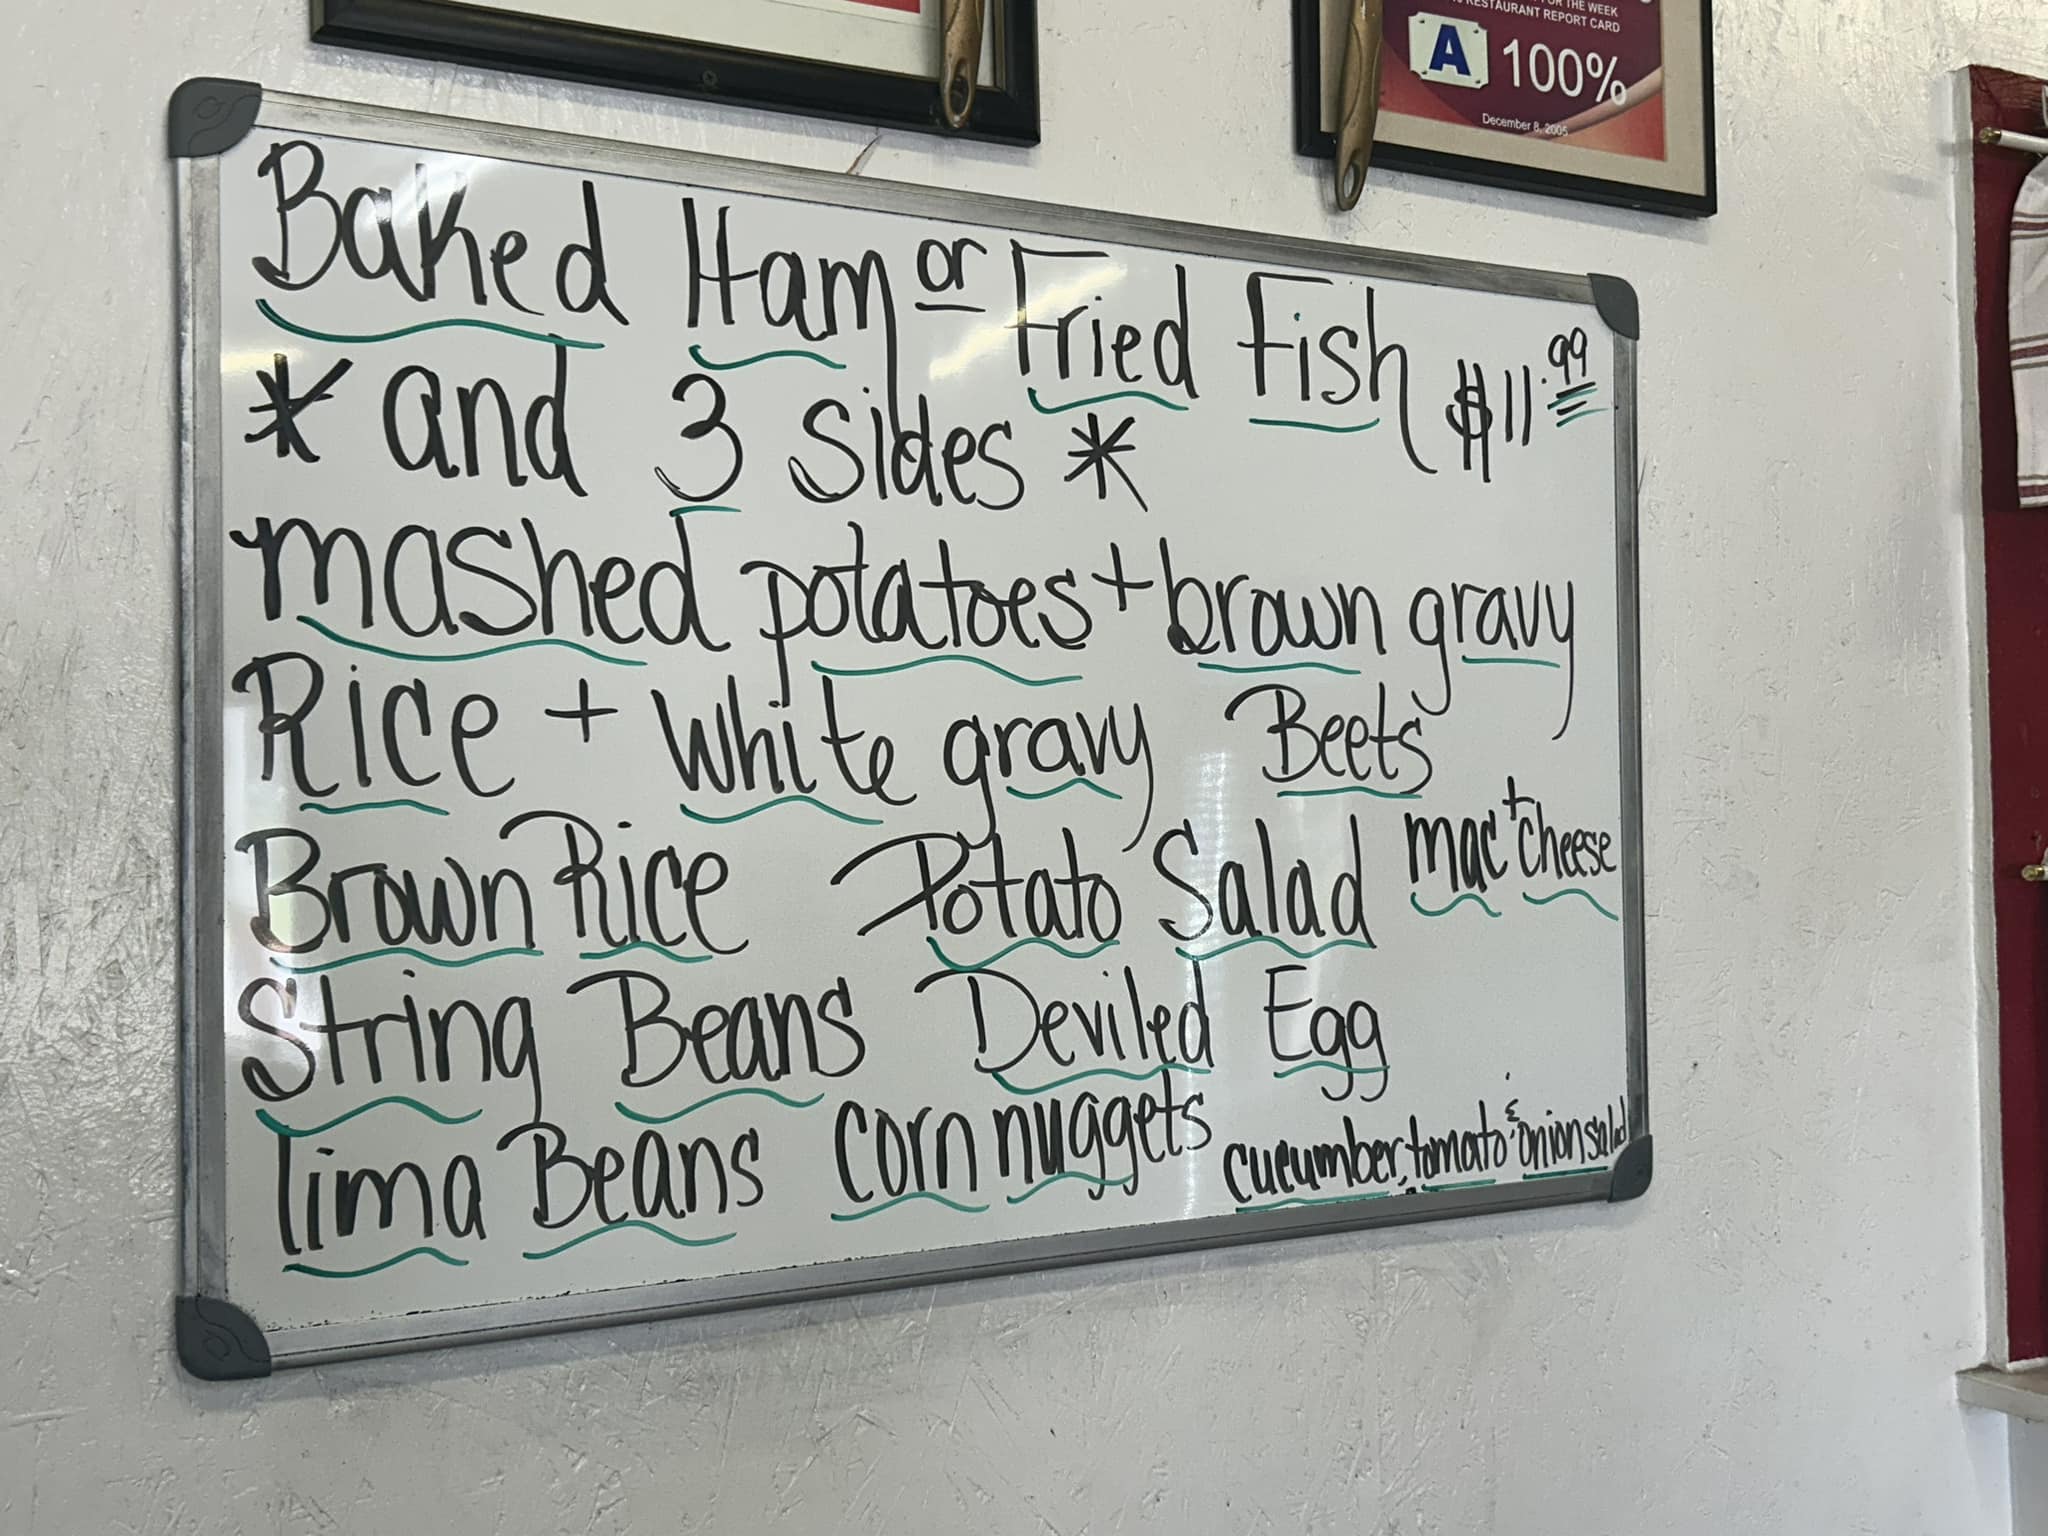 FOR THE WEEK
RESTAURANT REPORT CARD
A 100%
December 8, 2005
Baked Ham or Fried Fish $11.99
* and 3 sides *
mashed potatoes + brown gravy
Rice + white gravy Beets
Brown Rice Potato Salad mac + cheese
String Beans Deviled Egg
lima Beans corn nuggets cucumber, tomato & onion salad